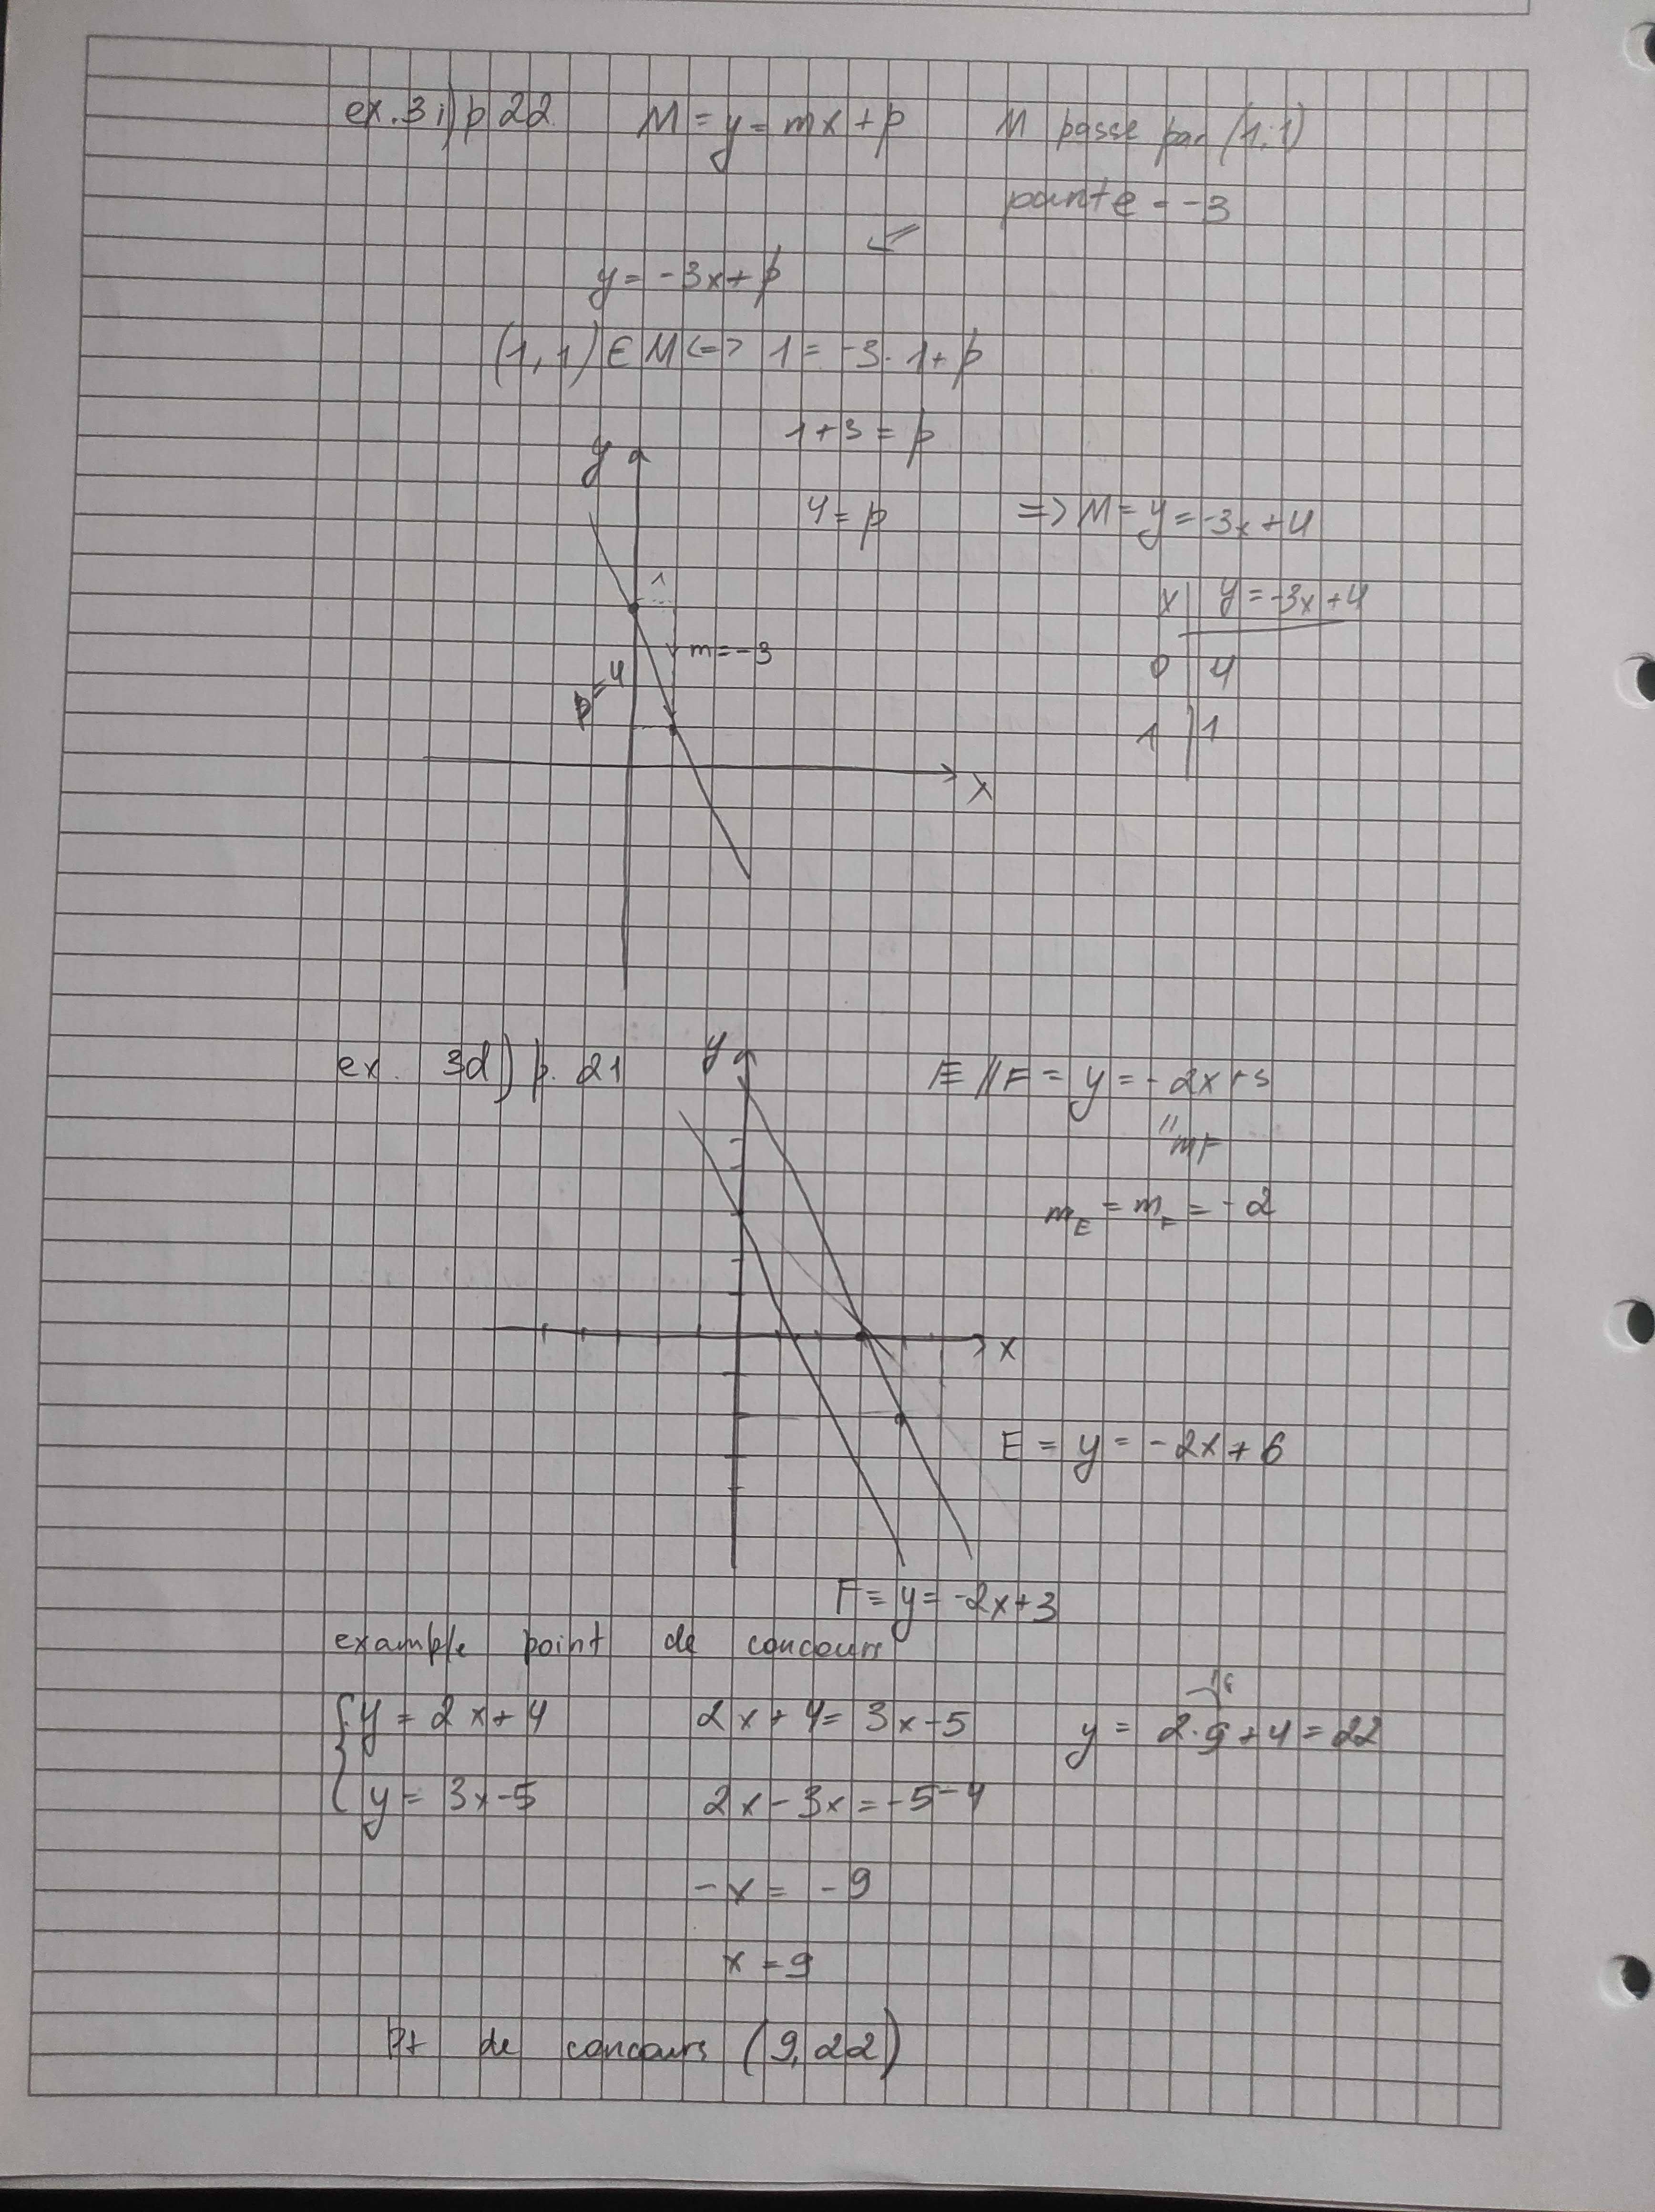 ex. 3 i) p 22 M = y = mx + p M passe par (1, 1)
pante = -3
y = -3x + p
(1, 1) ∈ M <=> 1 = -3 · 1 + p
1 + 3 = p
y
4 = p => M = y = -3x + 4
1
x | y = -3x + 4
m = -3
0 | 4
p = 4
1 | 1
x
ex. 3d) p. 21 y E // F = y = -2x + 3
" mF
mE = mF = -2
x
E = y = -2x + 6
F = y = -2x + 3
example point de concours
y = 2x + 4 2x + 4 = 3x - 5 y = 2 · 9 + 4 = 22
y = 3x - 5 2x - 3x = -5 - 4
-x = -9
x = 9
Pt de concours (9, 22)